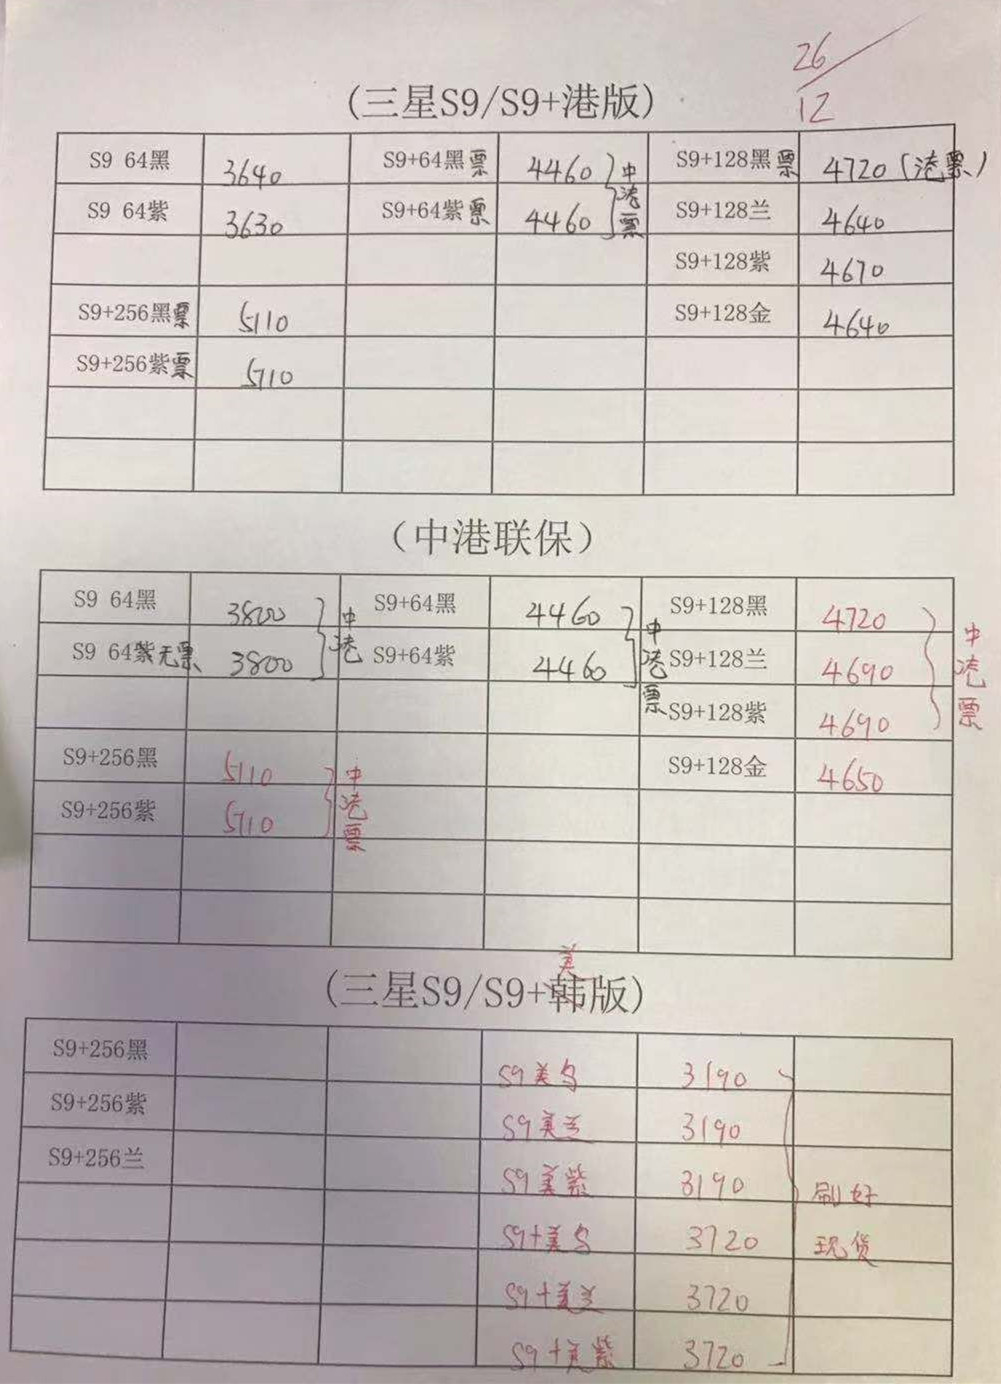 26/12
(三星S9/S9+港版)
S9 64黑 3640 S9+64黑票 4460 中 S9+128黑票 4720(港票)
S9 64紫 3630 S9+64紫票 4460 港票 S9+128兰 4640
S9+128紫 4670
S9+256黑票 5110 S9+128金 4640
S9+256紫票 5110
(中港联保)
S9 64黑 3800 中 S9+64黑 4460 中 S9+128黑 4720 中
S9 64紫无票 3800 港 S9+64紫 4460 港 S9+128兰 4690 港
票 S9+128紫 4690 票
S9+256黑 5110 中 S9+128金 4650
S9+256紫 5110 港
票
美
(三星S9/S9+韩版)
S9+256黑 S9美乌 3190
S9+256紫 S9美兰 3190
S9+256兰 S9美紫 3190 刷好
S9+美乌 3720 现货
S9+美兰 3720
S9+美紫 3720